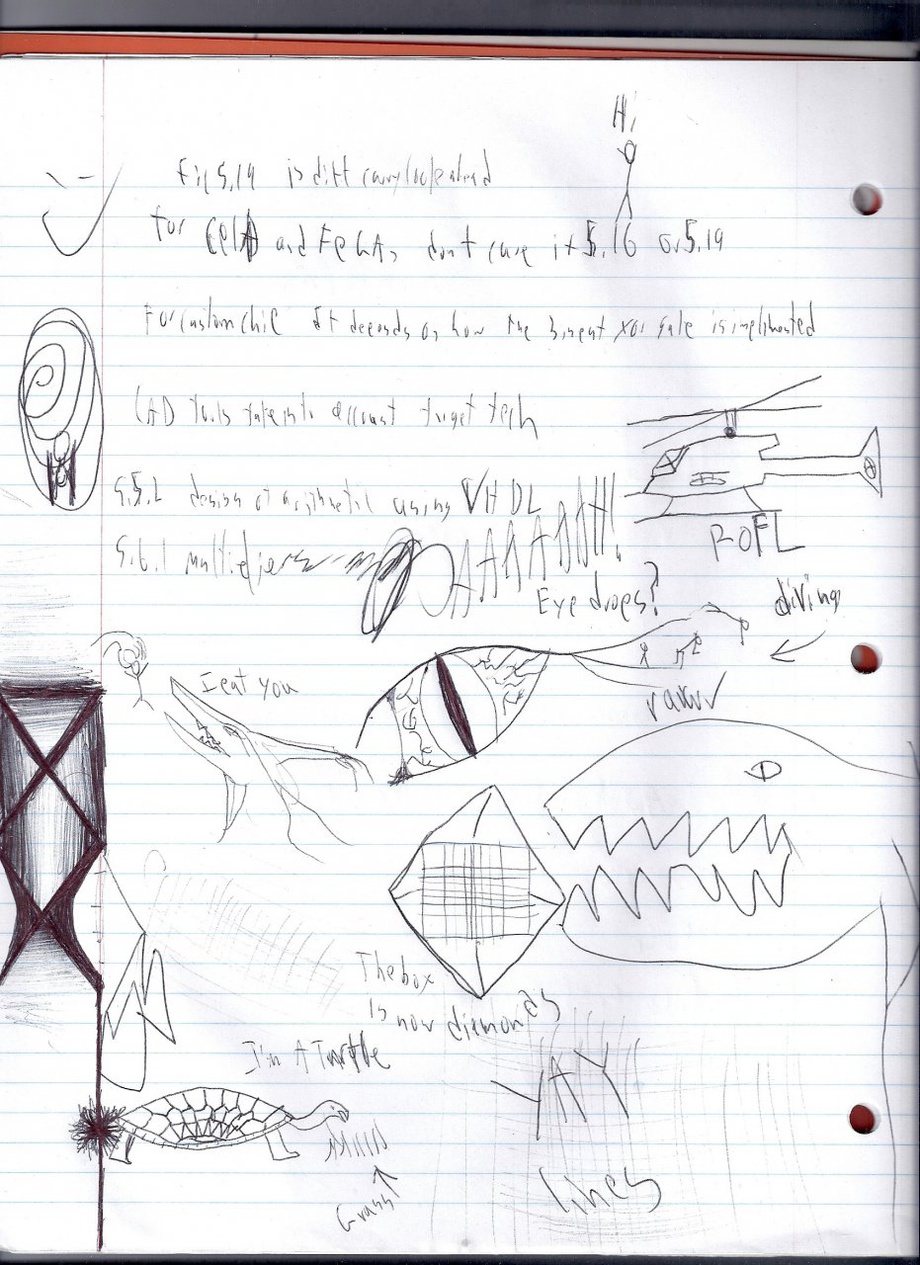 Hi
Fig 5.19 is diff carry lookahead
for and FPGAs don't care if 5.16 or 5.19
For custom chip It depends on how the 3 input xor gate is implimented
CAD tools take into account target tech
5.5.2 design of arithmetic using VHDL
ROFL
5.6.1 multipliers
AAAAAAH!!!
Eye drops?
diving
I eat you
rawr
The box
is now diamonds
I'm A Turtle
YAY
lines
Grass